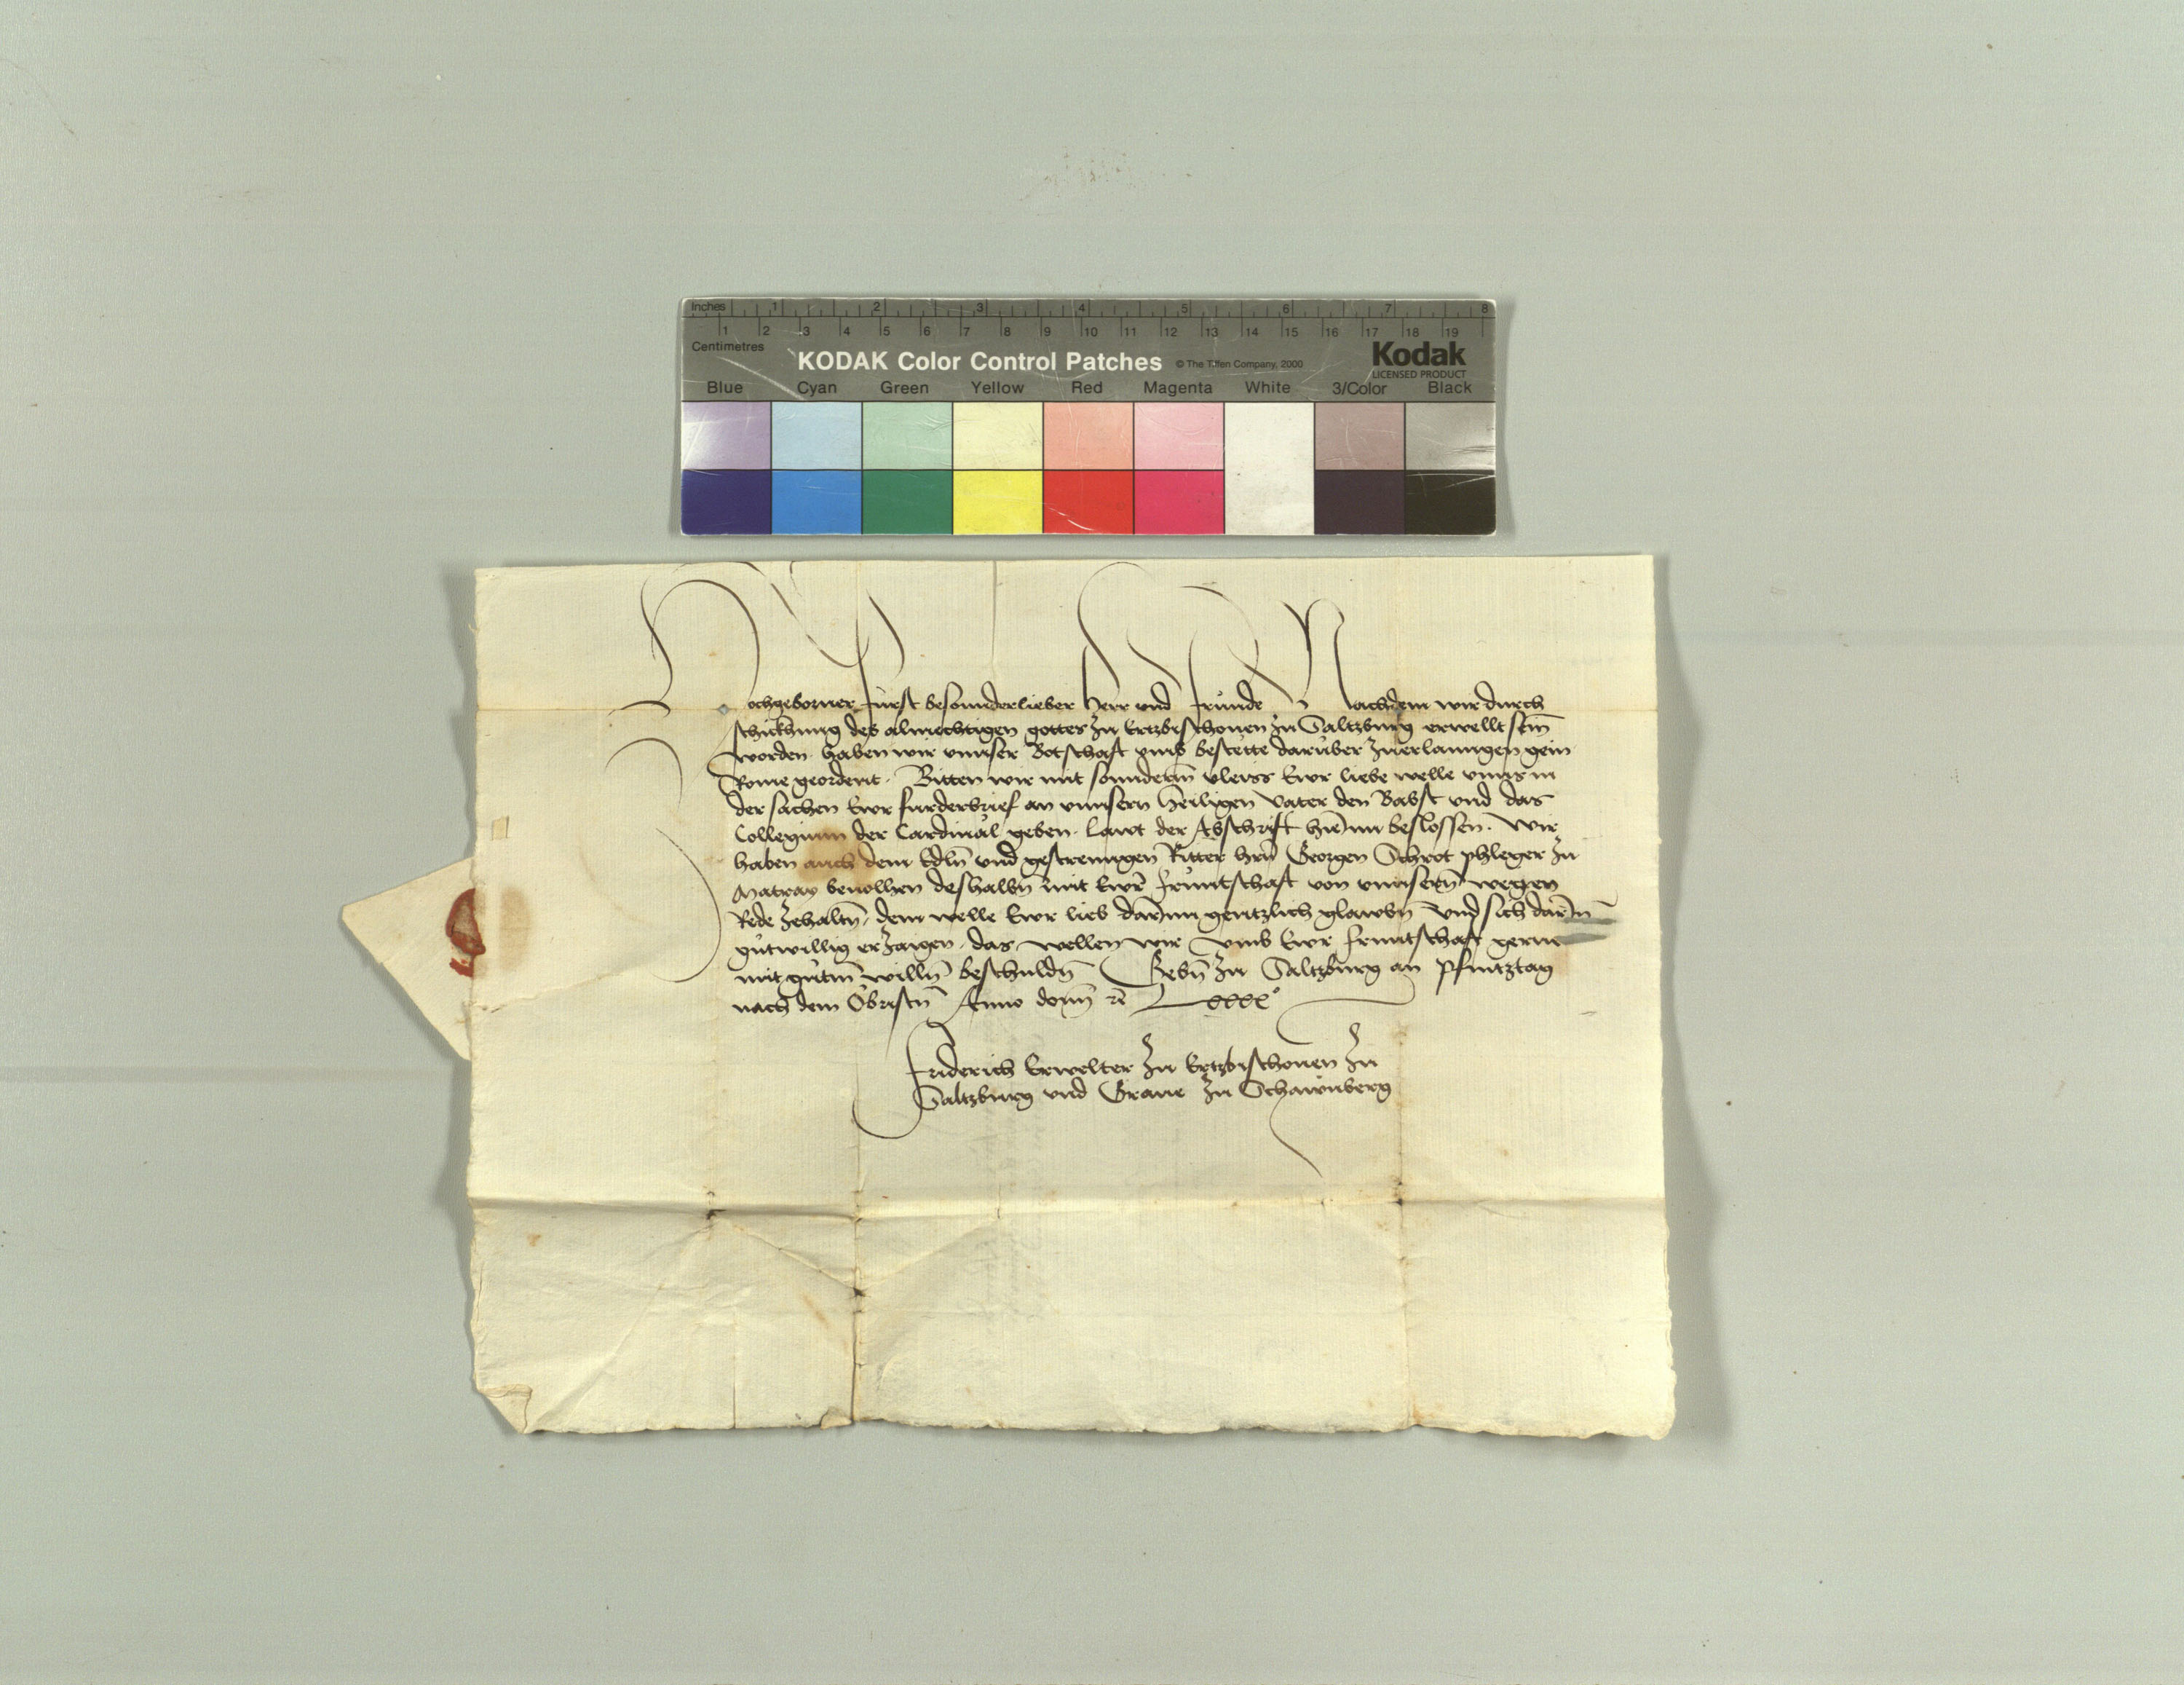 Inches 1 2 3 4 5 6 7 8
1 2 3 4 5 6 7 8 9 10 11 12 13 14 15 16 17 18 19
Centimetres
KODAK Color Control Patches © The Tiffen Company, 2000 Kodak
LICENSED PRODUCT
Blue Cyan Green Yellow Red Magenta White 3/Color Black
Hochgeborner fürst besonnderlieber herr und fründe Nachdem wir durch
schickhung des almechtigen gottes zu Ertzbischouen zu Saltzburg erwellt sein
worden haben wir vnnser Botschaft vmb bestette darüber zuerlanngen gein
Rome geordent. Bitten wir mit sonnderm vleiss Ewr liebe welle vnns in
der sachen Ewr furderbrief an vnnsern heiligen Vater den Babst vnd das
Collegium der Cardinal geben. lawt der Abschrift hieinn beslossen. Wir
haben auch dem Edln̄ vnd gestrenngen Ritter hrn̄ Georgen Schrot phleger zu
Matray beuolhen deshalbn̄ mit Ewr̄ fruntschaft von vnnsern̄ wegen
Rede zehaltn̄. dem welle Ewr lieb darinn gentzlich glawbn̄ Vnd sich darin̄
gutwillig erzaigen. das wellen wir vmb Ewr fruntschaft gerne
mit gutm̄ willn̄ beschuldn̄ Gebn̄ zu Saltzburg an Pfintztag
nach dem Obristn̄ Anno domī etc̄ Lxxxx°
Friderich Erwelter zu Ertzbischouen zu
Saltzburg vnd Graue zu Schawnberg